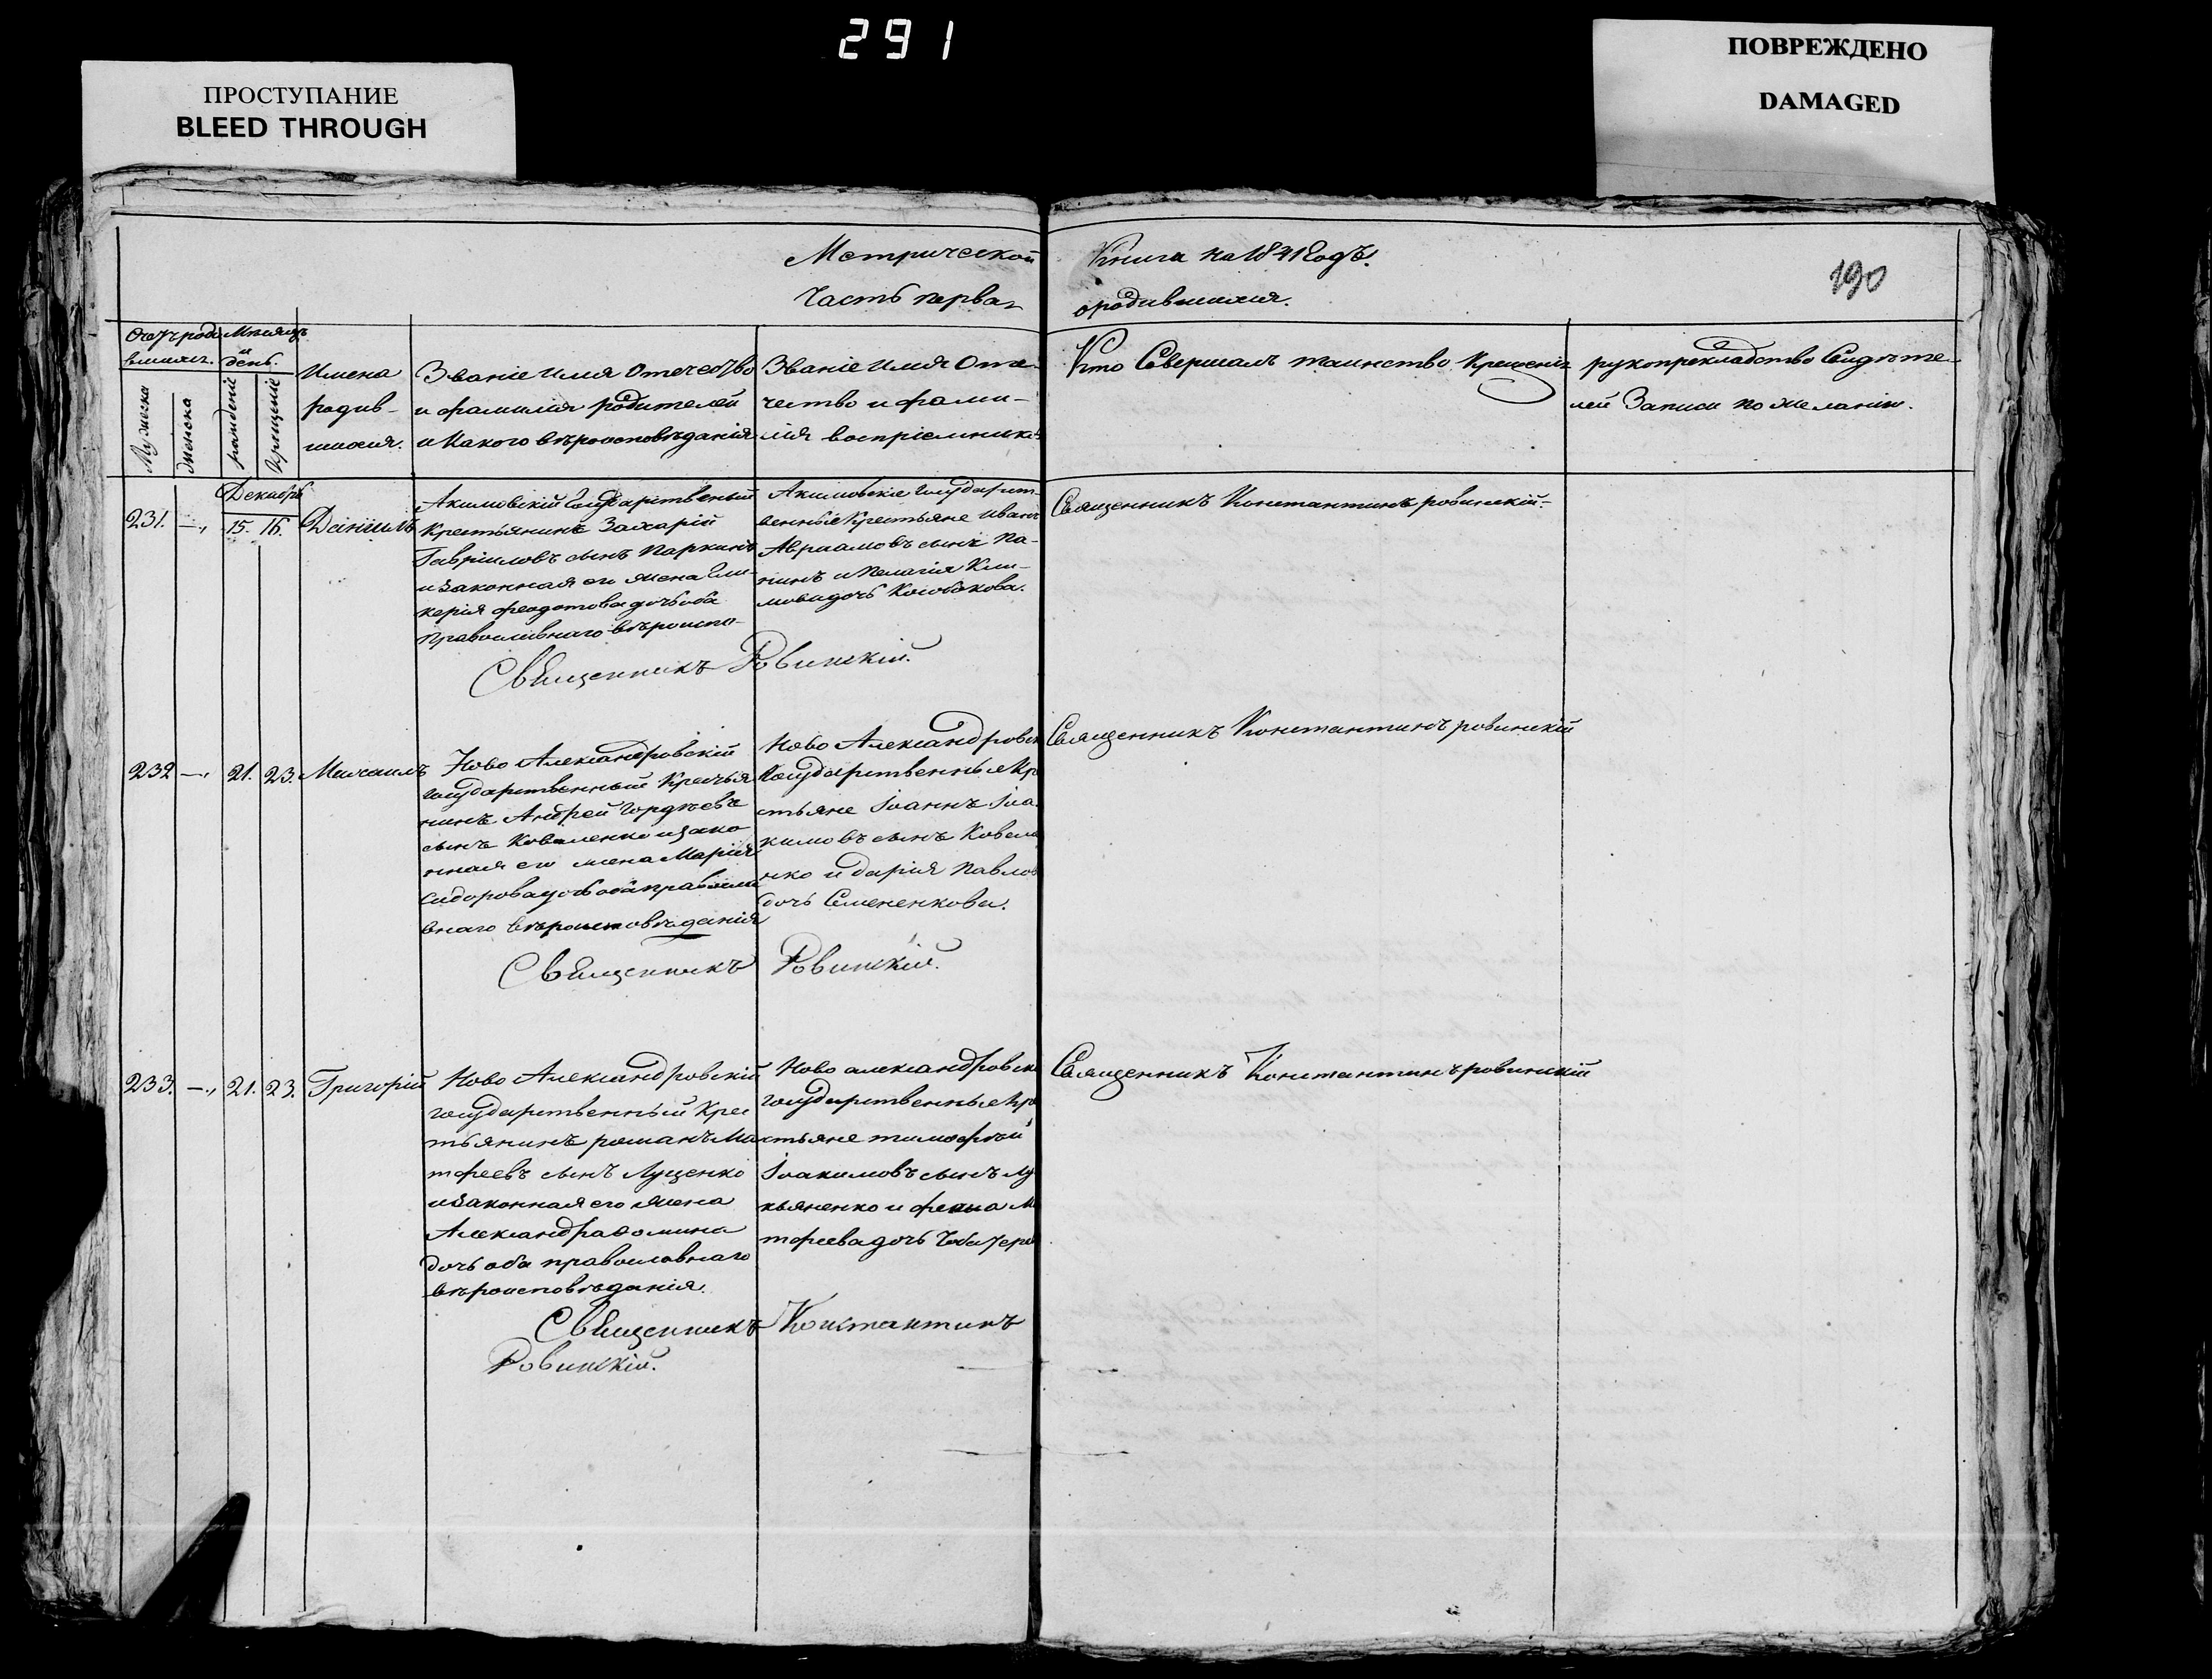 291
ПРОСТУПАНИЕ
BLEED THROUGH
ПОВРЕЖДЕНО
DAMAGED
Метрической Книги на 1841 Годъ.
Часть перва, о родившихся.
190
Счетъ роди Мѣсяцъ
вшихся. и день.
Мужеска
Женска
рожденіе
Крещеніе
Имена
родив-
шихся.
Званіе Имя Отечество
и фамилія родителей
и Какого вѣроисповѣданія
Званіе Имя Оте-
чество и фами-
лія воспріемниковъ
Кто Совершалъ таинство Крещенія
рукоприкладство Свидѣте-
лей Записи по желанію.
Декабрь
231. -., 15. 16. Даніилъ
Акимовскій Государственый
Крестьянинъ Захарій
Гавріиловъ сынъ Паркинъ
и Законная его жена Гли-
керія Феодотова дочь оба
Православнаго вѣроиспо-
Акимовскіе Государст-
венные Крестьяне Иванъ
Авраамовъ сынъ Па-
нинъ и Пелагія Кли-
мова дочь
Священникъ Константинъ ровинскій.
Священникъ Ровинскій.
232 -., 21. 23. Михаилъ
Ново Александровскій
государственный Крестья
нинъ Андрей Гордѣевъ
сынъ Коваленко и зако
нная его жена Марія
Сидорова дочь оба правосла
внаго вѣроисповѣданія
Ново Александровск
Государственные Кр
стьяне Іоаннъ Іоа
кимовъ сынъ Ковале
нко и дарія Павлов
дочь Семененкова.
Священникъ Константинъ ровинскій
Священникъ Ровинскій.
233. -., 21. 23. Григорій
Ново Александровскій
государственный Крес
тьянинъ романъ Ма
тфеевъ сынъ Луценко
и Законная его жена
Александра Фомина
дочь оба православнаго
вѣроисповѣданія.
Ново александровск
государственные Кр
стьяне тимофѣй
Іоакимовъ сынъ Лу
кьяненко и М
тфеева дочь
Священникъ Константинъ ровинскій
Священникъ Константинъ
Ровинскій.